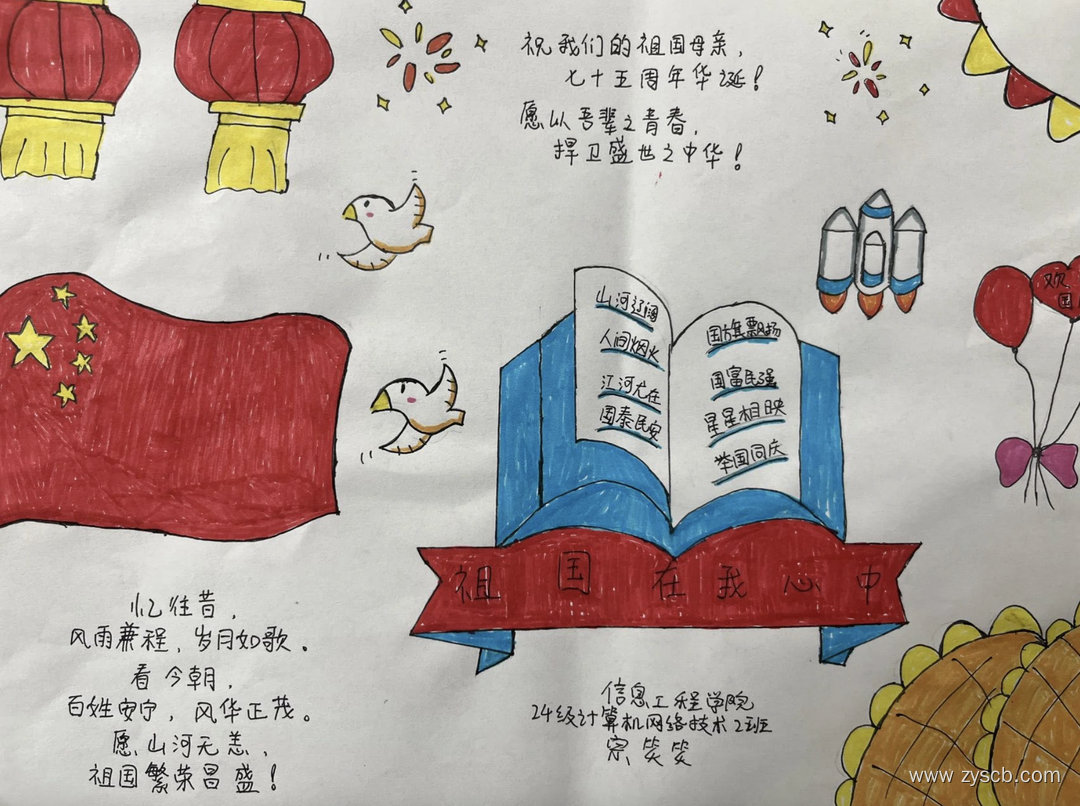 祝我们的祖国母亲，
七十五周年华诞！
愿以吾辈之青春，
捍卫盛世之中华！
欢
国
山河辽阔
人间烟火
江河尤在
国泰民安
国旗飘扬
国富民强
星星相映
举国同庆
祖国在我心中
忆往昔，
风雨兼程，岁月如歌。
看今朝，
百姓安宁，风华正茂。
愿山河无恙，
祖国繁荣昌盛！
信息工程学院
24级计算机网络技术2班
宗笑笑
www.zyscb.com